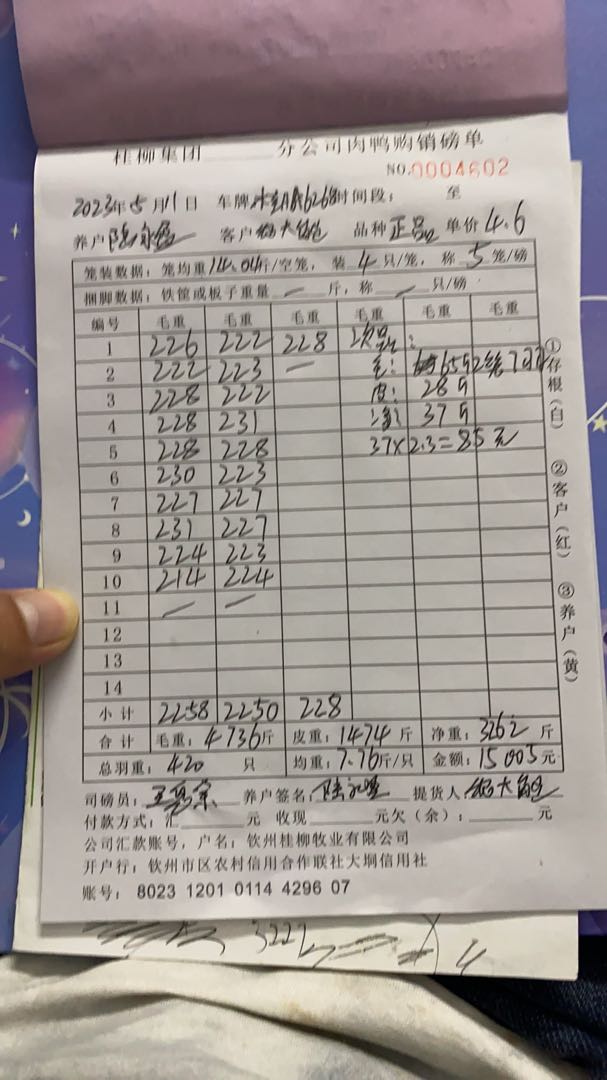 桂柳集团______分公司肉鸭购销磅单
NO.0004602
2023年5月11日 车牌 6268时间段: 至
养户 客户 品种 正品 单价 4.6
笼装数据:笼均重14.04斤/空笼,装 4 只/笼,称 5 笼/磅
捆脚数据:铁筐或板子重量 — 斤,称 — 只/磅
编号 毛重 毛重 毛重 毛重 毛重 毛重
1 226 222 228 次品:
2 222 223 — 毛: 65斤
3 228 222 皮: 28斤
4 228 231 净: 37斤
5 228 228 37×2.3=85元
6 230 223
7 227 227
8 231 227
9 224 223
10 214 224
11 — —
12
13
14
小计 2258 2250 228
合计 毛重:4736斤 皮重:1474斤 净重:3262斤
总羽重:420 只 均重:7.76斤/只 金额:15005元
司磅员: 养户签名: 提货人:
付款方式:汇______元 收现______元欠(余):______元
公司汇款账号,户名:钦州桂柳牧业有限公司
开户行:钦州市区农村信用合作联社大垌信用社
账号: 8023 1201 0114 4296 07
①存根(白)
②客户(红)
③养户(黄)
3222
4